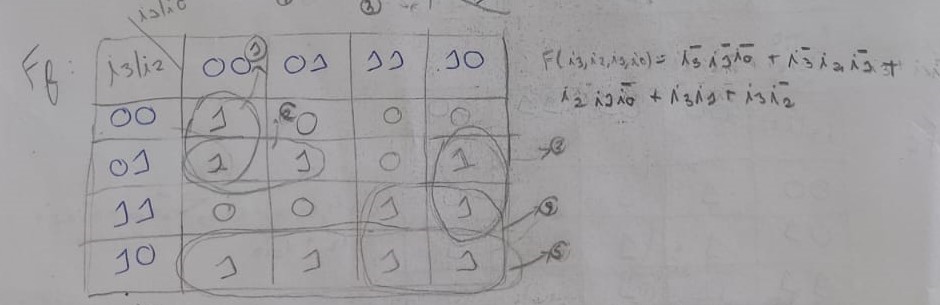 i1i0
F_f : i3i2 00 01 11 10
00 1 0 0 0
01 1 1 0 1
11 0 0 1 1
10 1 1 1 1
① ② ③ ④ ⑤
F(i3,i2,i1,i0) = i̅3 i̅1 i̅0 + i̅3 i2 i̅1 +
i2 i1 i̅0 + i3 i1 + i3 i̅2